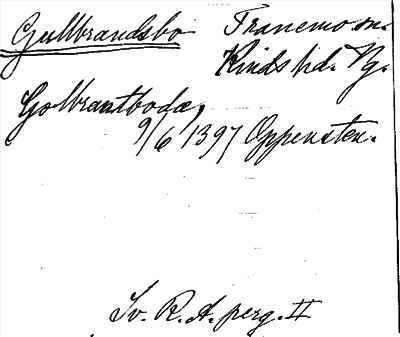 Gullbrandsbo Tranemo sn.
Kinds hd. Vg.
Golbrantboda,
9/6 1397 Oppensten.
Sv. R. A. perg. II